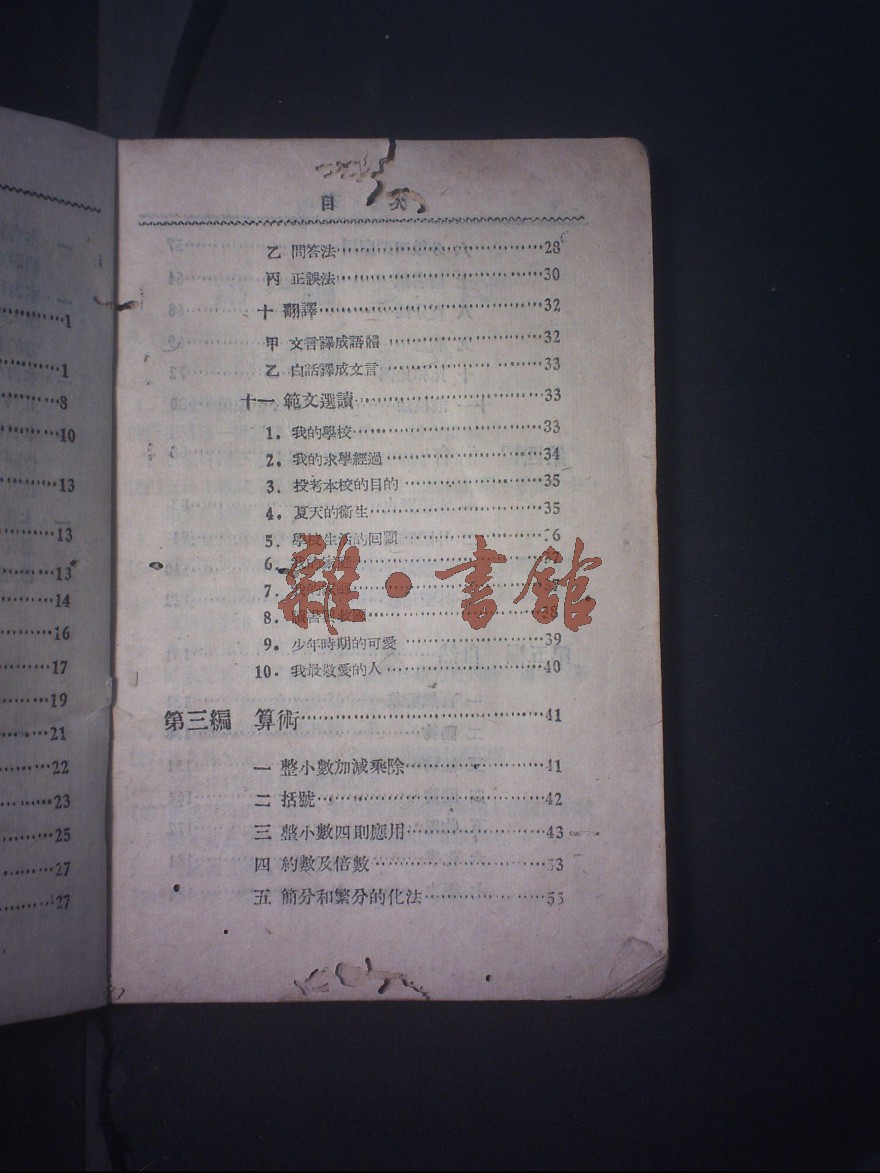 1
1
8
10
13
13
13
14
16
17
19
21
22
23
25
27
27
目 次
乙 問答法 28
丙 正誤法 30
十 翻譯 32
甲 文言譯成語體 32
乙 白話譯成文言 33
十一 範文選讀 33
1. 我的學校 33
2. 我的求學經過 34
3. 投考本校的目的 35
4. 夏天的衞生 35
5. 學校生活的回顧
6. 我的家庭
7. 我的
8. 讀書 38
9. 少年時期的可愛 39
10. 我最敬愛的人 40
雜·書館
第三編 算術 41
一 整小數加減乘除 41
二 括號 42
三 整小數四則應用 43
四 約數及倍數 53
五 簡分和繁分的化法 55